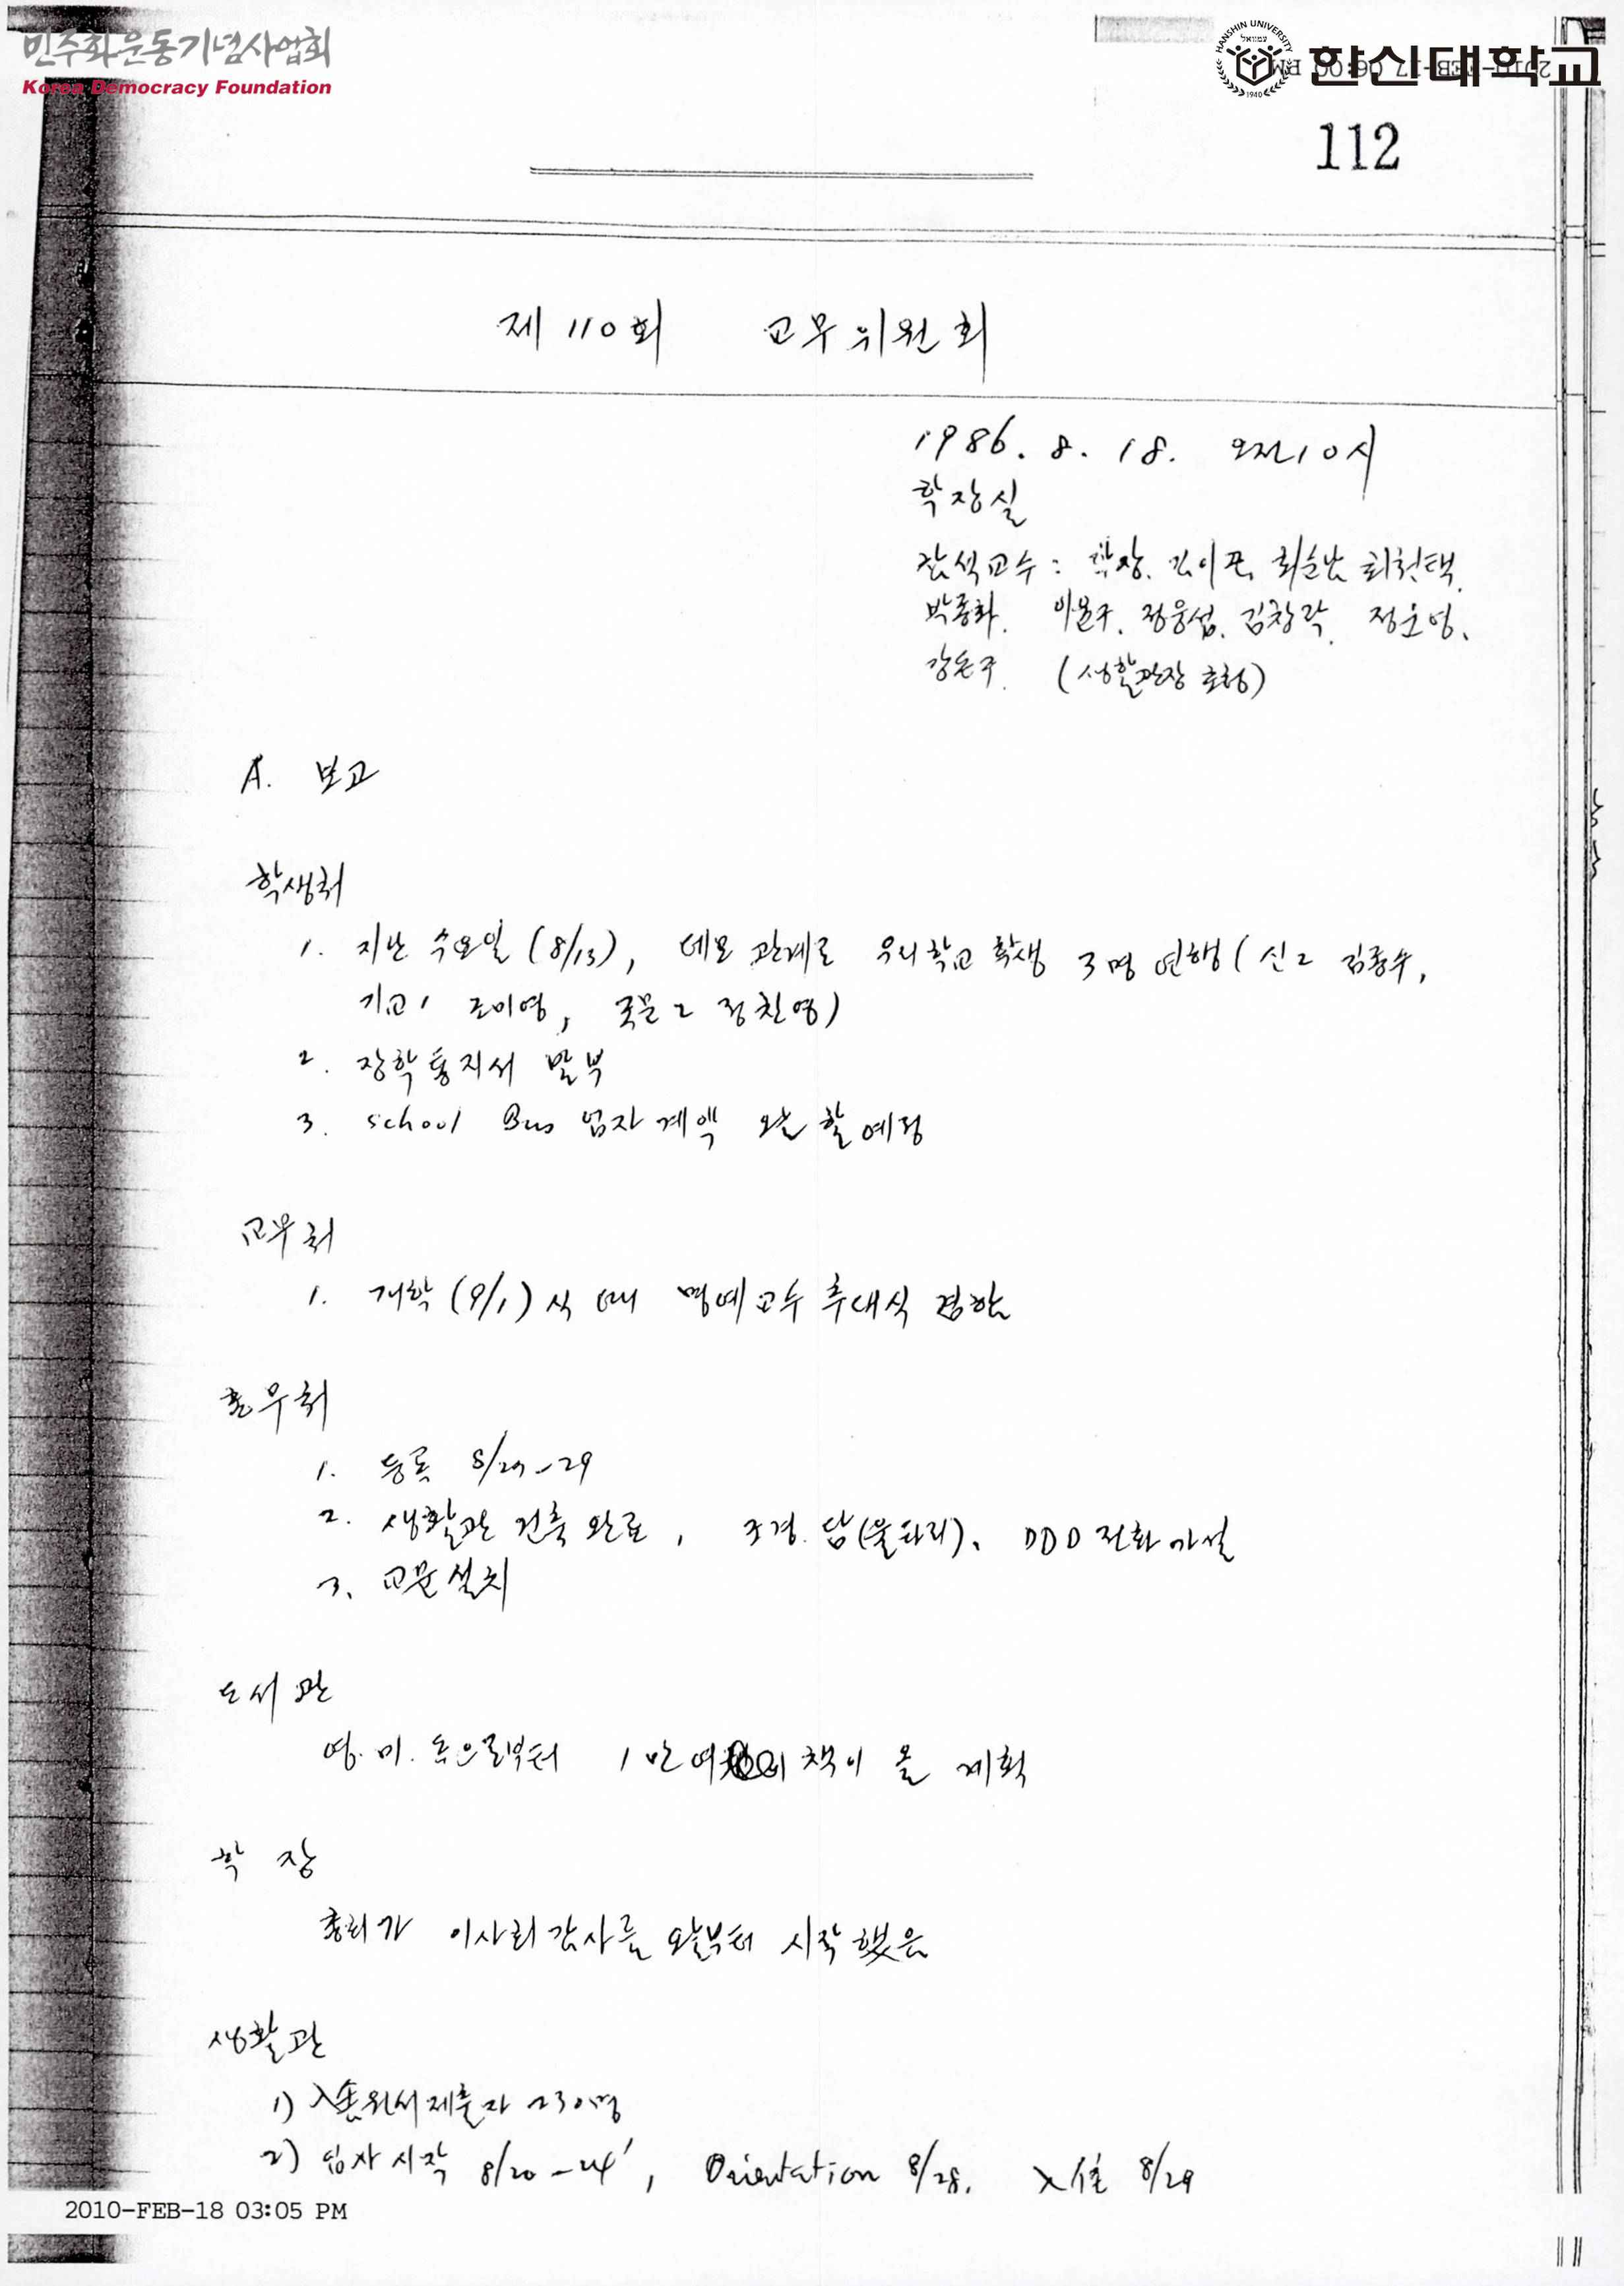 민주화운동기념사업회
Korea Democracy Foundation
HANSHIN UNIVERSITY
1940
한신대학교
112
제 110회 교무위원회
1986. 8. 18. 오전10시
학장실
참석교수 : 학장. 최순남 최천택.
박종화. 정웅섭. 김창락. 정운영.
강돈구. (생활관장 포함)
A. 보고
학생처
1. 지난 수요일 (8/13), 데모 관계로 우리학교 학생 3명 연행 (신2 김종수,
기교1 조미영, 국문2 정찬영)
2. 장학통지서 발부
3. school Bus 업자 계약 오늘 할 예정
교무처
1. 개학(9/1)식 때 명예교수 추대식 겸함
총무처
1. 등록 8/27-29
2. 생활관 건축 완료, 조경. 담(울타리). DDD 전화 가설
3. 교문설치
도서관
영. 미. 독으로부터 1만여 책이 올 계획
학 장
총회가 이사회 감사를 오늘부터 시작했음
생활관
1) 入舍원서 제출자 230명
2) 입사 시작 8/20-24, Orientation 8/28. 入住 8/29
2010-FEB-18 03:05 PM